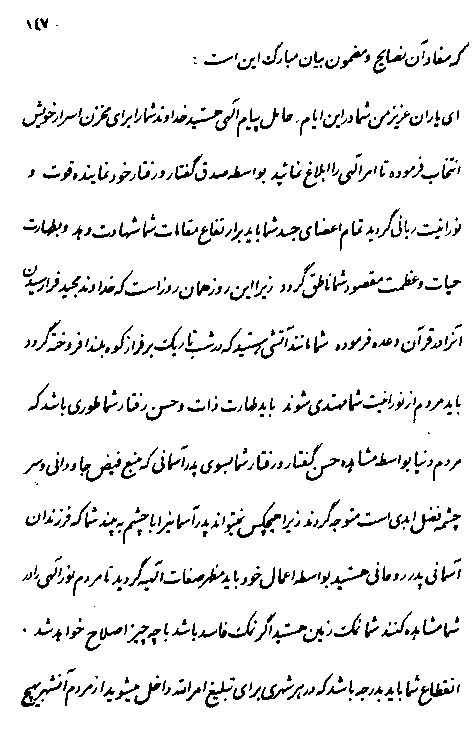 ۱۴۷
که مفاد آن نصایح و مضمون بیان مبارک این است :
ای یاران عزیز من شما در این ایام حامل پیام الهی هستید خداوند شما را برای مخزن اسرار خویش
انتخاب فرموده تا امر الهی را ابلاغ نمائید بواسطه صدق گفتار و رفتار خود نماینده قوت و
نورانیت ربانی گردید تمام اعضای جسد شما باید بر ارتفاع مقامات شما شهادت دهد و بطهارت
حیات و عظمت مقصود شما ناطق گردد زیرا این روز همان روز است که خداوند مجید فرا رسیدن
آنرا در قرآن وعده فرموده شما مانند آتشی هستید که در شب تاریک بر فراز کوه بلند افروخته گردد
باید مردم از نورانیت شما مهتدی شوند باید طهارت ذات و حسن رفتار شما طوری باشد که
مردم دنیا بواسطه مشاهده حسن گفتار و رفتار شما بسوی پدر آسمانی که منبع فیض جاودانی و سر
چشمه فضل ابدی است متوجه گردند زیرا هیچکس نمیتواند پدر آسمانیرا با چشم به بیند شما که فرزندان
آسمانی پدر روحانی هستید بواسطه اعمال خود باید مظهر صفات الهیه گردید تا مردم نور الهی را در
شما مشاهده کنند شما نمک زمین هستید اگر نمک فاسد باشد با چه چیز اصلاح خواهد شد .
انقطاع شما باید بدرجه باشد که در هر شهری برای تبلیغ امرالله داخل میشوید از مردم آنشهر هیچ